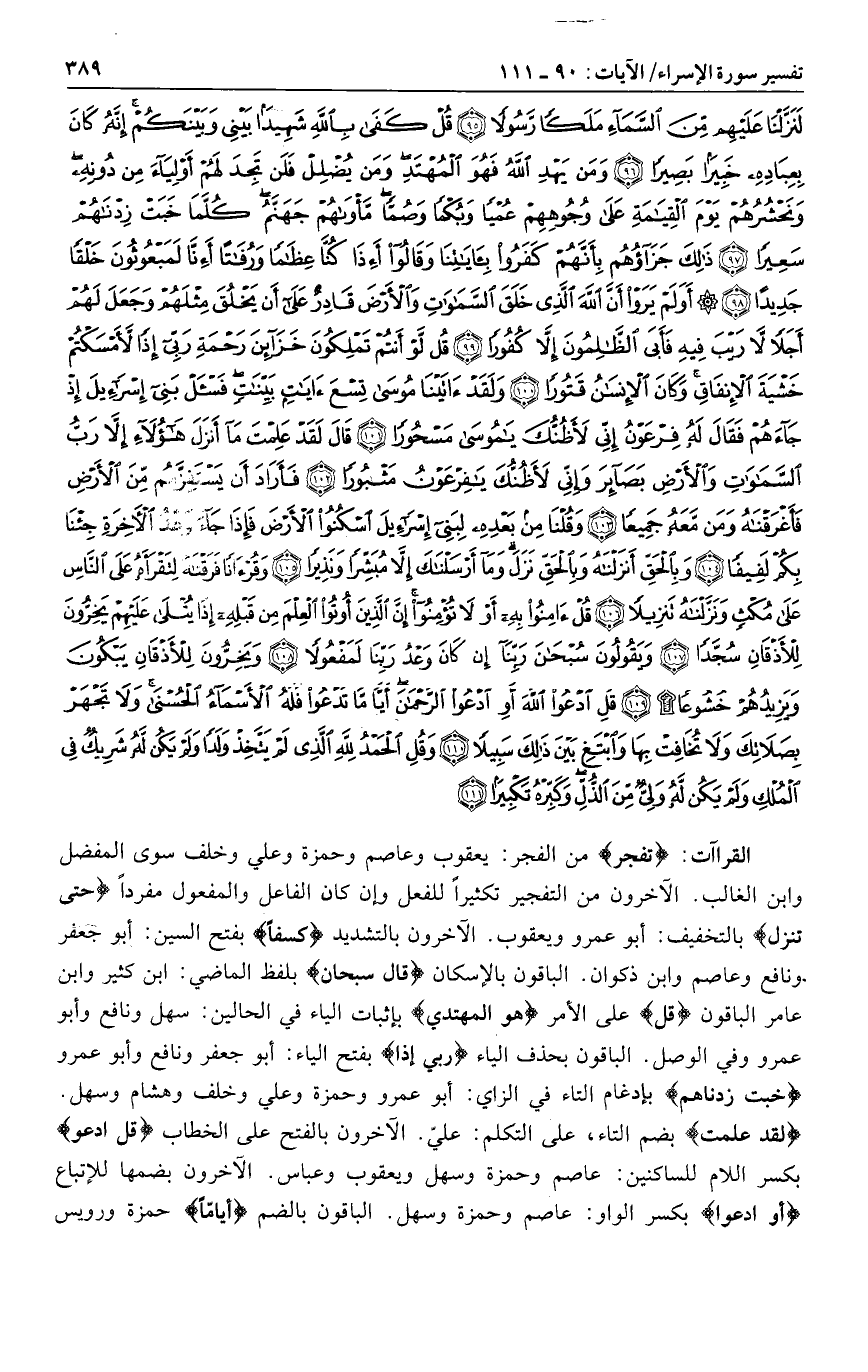 تفسير سورة الإسراء/ الآيات : ٩٠ ـ ١١١
٣٨٩
لَنَزَّلْنَا عَلَيْهِم مِّنَ ٱلسَّمَآءِ مَلَكًا رَّسُولًا ﴿٩٥﴾ قُلْ كَفَىٰ بِٱللَّهِ شَهِيدًۢا بَيْنِى وَبَيْنَكُمْ ۚ إِنَّهُۥ كَانَ
بِعِبَادِهِۦ خَبِيرًۢا بَصِيرًا ﴿٩٦﴾ وَمَن يَهْدِ ٱللَّهُ فَهُوَ ٱلْمُهْتَدِ ۖ وَمَن يُضْلِلْ فَلَن تَجِدَ لَهُمْ أَوْلِيَآءَ مِن دُونِهِۦ ۖ
وَنَحْشُرُهُمْ يَوْمَ ٱلْقِيَٰمَةِ عَلَىٰ وُجُوهِهِمْ عُمْيًا وَبُكْمًا وَصُمًّا ۖ مَّأْوَىٰهُمْ جَهَنَّمُ ۖ كُلَّمَا خَبَتْ زِدْنَٰهُمْ
سَعِيرًا ﴿٩٧﴾ ذَٰلِكَ جَزَآؤُهُم بِأَنَّهُمْ كَفَرُوا۟ بِـَٔايَٰتِنَا وَقَالُوٓا۟ أَءِذَا كُنَّا عِظَٰمًا وَرُفَٰتًا أَءِنَّا لَمَبْعُوثُونَ خَلْقًا
جَدِيدًا ﴿٩٨﴾ ۞ أَوَلَمْ يَرَوْا۟ أَنَّ ٱللَّهَ ٱلَّذِى خَلَقَ ٱلسَّمَٰوَٰتِ وَٱلْأَرْضَ قَادِرٌ عَلَىٰٓ أَن يَخْلُقَ مِثْلَهُمْ وَجَعَلَ لَهُمْ
أَجَلًا لَّا رَيْبَ فِيهِ فَأَبَى ٱلظَّٰلِمُونَ إِلَّا كُفُورًا ﴿٩٩﴾ قُل لَّوْ أَنتُمْ تَمْلِكُونَ خَزَآئِنَ رَحْمَةِ رَبِّىٓ إِذًا لَّأَمْسَكْتُمْ
خَشْيَةَ ٱلْإِنفَاقِ ۚ وَكَانَ ٱلْإِنسَٰنُ قَتُورًا ﴿١٠٠﴾ وَلَقَدْ ءَاتَيْنَا مُوسَىٰ تِسْعَ ءَايَٰتٍۭ بَيِّنَٰتٍ ۖ فَسْـَٔلْ بَنِىٓ إِسْرَٰٓءِيلَ إِذْ
جَآءَهُمْ فَقَالَ لَهُۥ فِرْعَوْنُ إِنِّى لَأَظُنُّكَ يَٰمُوسَىٰ مَسْحُورًا ﴿١٠١﴾ قَالَ لَقَدْ عَلِمْتَ مَآ أَنزَلَ هَٰٓؤُلَآءِ إِلَّا رَبُّ
ٱلسَّمَٰوَٰتِ وَٱلْأَرْضِ بَصَآئِرَ وَإِنِّى لَأَظُنُّكَ يَٰفِرْعَوْنُ مَثْبُورًا ﴿١٠٢﴾ فَأَرَادَ أَن يَسْتَفِزَّهُم مِّنَ ٱلْأَرْضِ
فَأَغْرَقْنَٰهُ وَمَن مَّعَهُۥ جَمِيعًا ﴿١٠٣﴾ وَقُلْنَا مِنۢ بَعْدِهِۦ لِبَنِىٓ إِسْرَٰٓءِيلَ ٱسْكُنُوا۟ ٱلْأَرْضَ فَإِذَا جَآءَ وَعْدُ ٱلْءَاخِرَةِ جِئْنَا
بِكُمْ لَفِيفًا ﴿١٠٤﴾ وَبِٱلْحَقِّ أَنزَلْنَٰهُ وَبِٱلْحَقِّ نَزَلَ ۗ وَمَآ أَرْسَلْنَٰكَ إِلَّا مُبَشِّرًا وَنَذِيرًا ﴿١٠٥﴾ وَقُرْءَانًا فَرَقْنَٰهُ لِتَقْرَأَهُۥ عَلَى ٱلنَّاسِ
عَلَىٰ مُكْثٍ وَنَزَّلْنَٰهُ تَنزِيلًا ﴿١٠٦﴾ قُلْ ءَامِنُوا۟ بِهِۦٓ أَوْ لَا تُؤْمِنُوٓا۟ ۚ إِنَّ ٱلَّذِينَ أُوتُوا۟ ٱلْعِلْمَ مِن قَبْلِهِۦٓ إِذَا يُتْلَىٰ عَلَيْهِمْ يَخِرُّونَ
لِلْأَذْقَانِ سُجَّدًا ﴿١٠٧﴾ وَيَقُولُونَ سُبْحَٰنَ رَبِّنَآ إِن كَانَ وَعْدُ رَبِّنَا لَمَفْعُولًا ﴿١٠٨﴾ وَيَخِرُّونَ لِلْأَذْقَانِ يَبْكُونَ
وَيَزِيدُهُمْ خُشُوعًا ۩ ﴿١٠٩﴾ قُلِ ٱدْعُوا۟ ٱللَّهَ أَوِ ٱدْعُوا۟ ٱلرَّحْمَٰنَ ۖ أَيًّا مَّا تَدْعُوا۟ فَلَهُ ٱلْأَسْمَآءُ ٱلْحُسْنَىٰ ۚ وَلَا تَجْهَرْ
بِصَلَاتِكَ وَلَا تُخَافِتْ بِهَا وَٱبْتَغِ بَيْنَ ذَٰلِكَ سَبِيلًا ﴿١١٠﴾ وَقُلِ ٱلْحَمْدُ لِلَّهِ ٱلَّذِى لَمْ يَتَّخِذْ وَلَدًا وَلَمْ يَكُن لَّهُۥ شَرِيكٌ فِى
ٱلْمُلْكِ وَلَمْ يَكُن لَّهُۥ وَلِىٌّ مِّنَ ٱلذُّلِّ ۖ وَكَبِّرْهُ تَكْبِيرًۢا ﴿١١١﴾
القراآت: ﴿تفجر﴾ من الفجر: يعقوب وعاصم وحمزة وعلي وخلف سوى المفضل
وابن الغالب. الآخرون من التفجير تكثيراً للفعل وإن كان الفاعل والمفعول مفرداً ﴿حتى
تنزل﴾ بالتخفيف: أبو عمرو ويعقوب. الآخرون بالتشديد ﴿كسفاً﴾ بفتح السين: أبو جعفر
ونافع وعاصم وابن ذكوان. الباقون بالإسكان ﴿قال سبحان﴾ بلفظ الماضي: ابن كثير وابن
عامر الباقون ﴿قل﴾ على الأمر ﴿هو المهتدي﴾ بإثبات الياء في الحالين: سهل ونافع وأبو
عمرو وفي الوصل. الباقون بحذف الياء ﴿ربي إذا﴾ بفتح الياء: أبو جعفر ونافع وأبو عمرو
﴿خبت زدناهم﴾ بإدغام التاء في الزاي: أبو عمرو وحمزة وعلي وخلف وهشام وسهل.
﴿لقد علمت﴾ بضم التاء، على التكلم: عليّ. الآخرون بالفتح على الخطاب ﴿قل ادعو﴾
بكسر اللام للساكنين: عاصم وحمزة وسهل ويعقوب وعباس. الآخرون بضمها للإتباع
﴿أو ادعوا﴾ بكسر الواو: عاصم وحمزة وسهل. الباقون بالضم ﴿أيامّاً﴾ حمزة ورويس